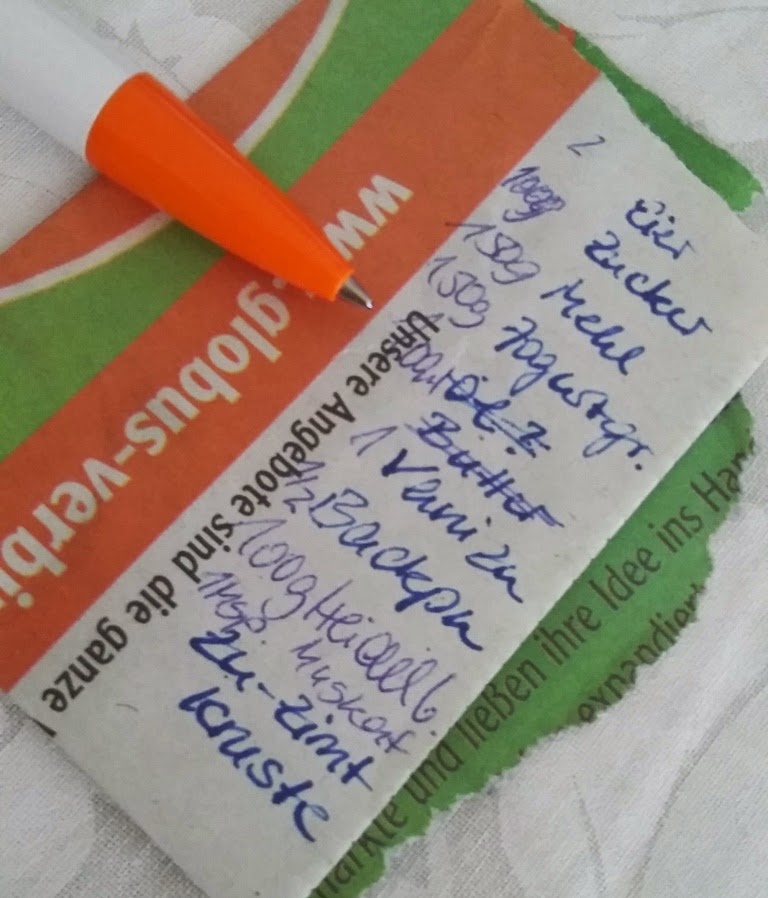 www.globus-verbi
Unsere Angebote sind die ganze
2 Eier
100g Zucker
150g Mehl
150g Jogurtgr.
Öl?
Butter
1 Vanizu
1/2 Backpu
100g Heidelb.
1 Msp. Muskat
Zu-Zimt
Kruste
ließen ihre Idee ins Han
expandiert
märkte und